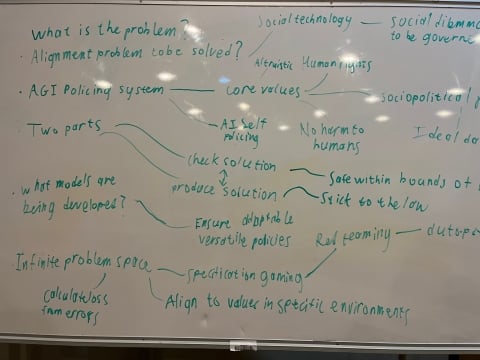 What is the problem?
Social technology — social dilemma
to be governe
· Alignment problem to be solved?
Altruistic Human rights
· AGI Policing system — core values
sociopolitical
AI self
policing
No harm to
humans
Ideal
· Two parts
check solution
produce solution
Safe within bounds of
Stick to the law
· What models are
being developed?
Ensure adaptable
versatile policies
Red teaming —
Infinite problem space
specification gaming
Calculate loss
from errors
Align to values in specific environments